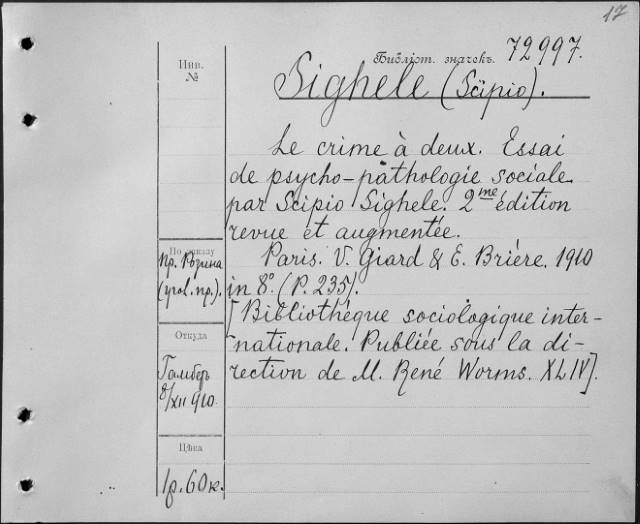 17
Библіот. значекъ. 72997.
Sighele (Scipio).
Инв.
№
Le crime à deux. Essai
de psycho-pathologie sociale
par Scipio Sighele. 2me édition
revue et augmentée.
Paris. V. Giard & E. Brière. 1910
in 8°. (P. 235).
[Bibliothèque sociologique inter-
nationale. Publiée sous la di-
rection de M. René Worms. XLIV].
По заказу
пр. Розина
(угол. пр.).
Откуда
Гамберъ
8/XII 910.
Цѣна
1р. 60к.